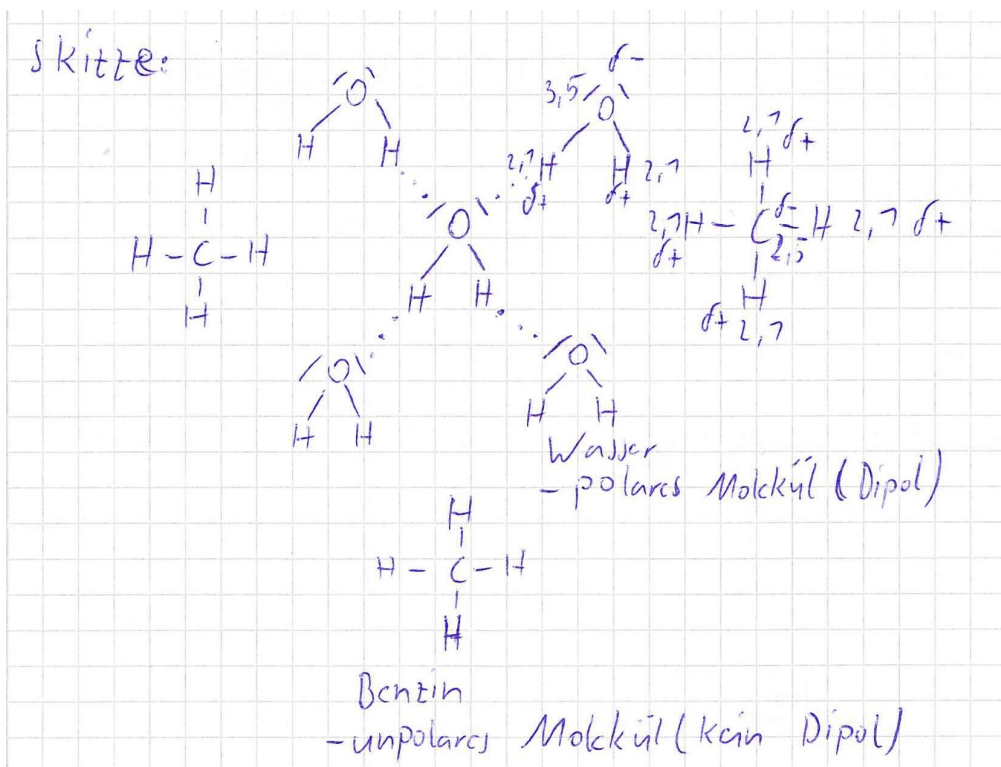 Skizze:
δ-
3,5
O
O
H H
2,1 H H 2,1
δ+ δ+
2,1 δ+
H
2,1 H - C - H 2,1 δ+
δ+ δ- 2,5
H
δ+ 2,1
H
H - C - H
H
O
H H
O
H H
O
H H
Wasser
- polares Molekül (Dipol)
H
H - C - H
H
Benzin
- unpolares Molekül (Kein Dipol)